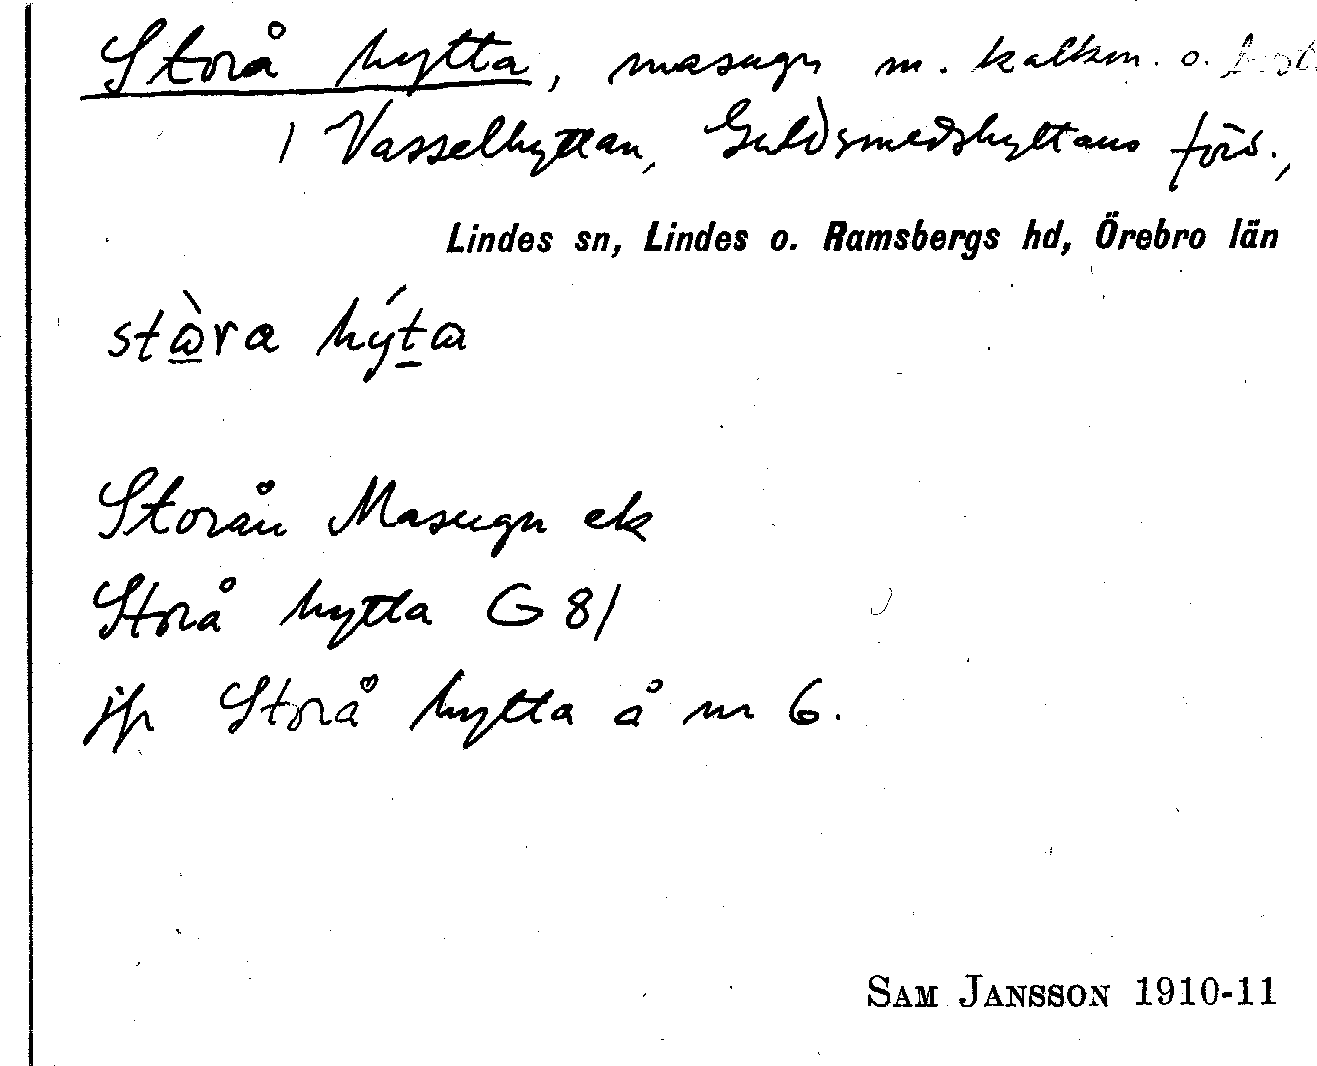 Storå hytta, masugn m. kalkm. o.
i Vasselhyttan, Guldsmedshyttans förs.,
Lindes sn, Lindes o. Ramsbergs hd, Örebro län
stὼra hýt̲ɷ
Storån Masugn ek
Storå hytta G 81
jfr Storå hytta å nr 6.
SAM JANSSON 1910-11